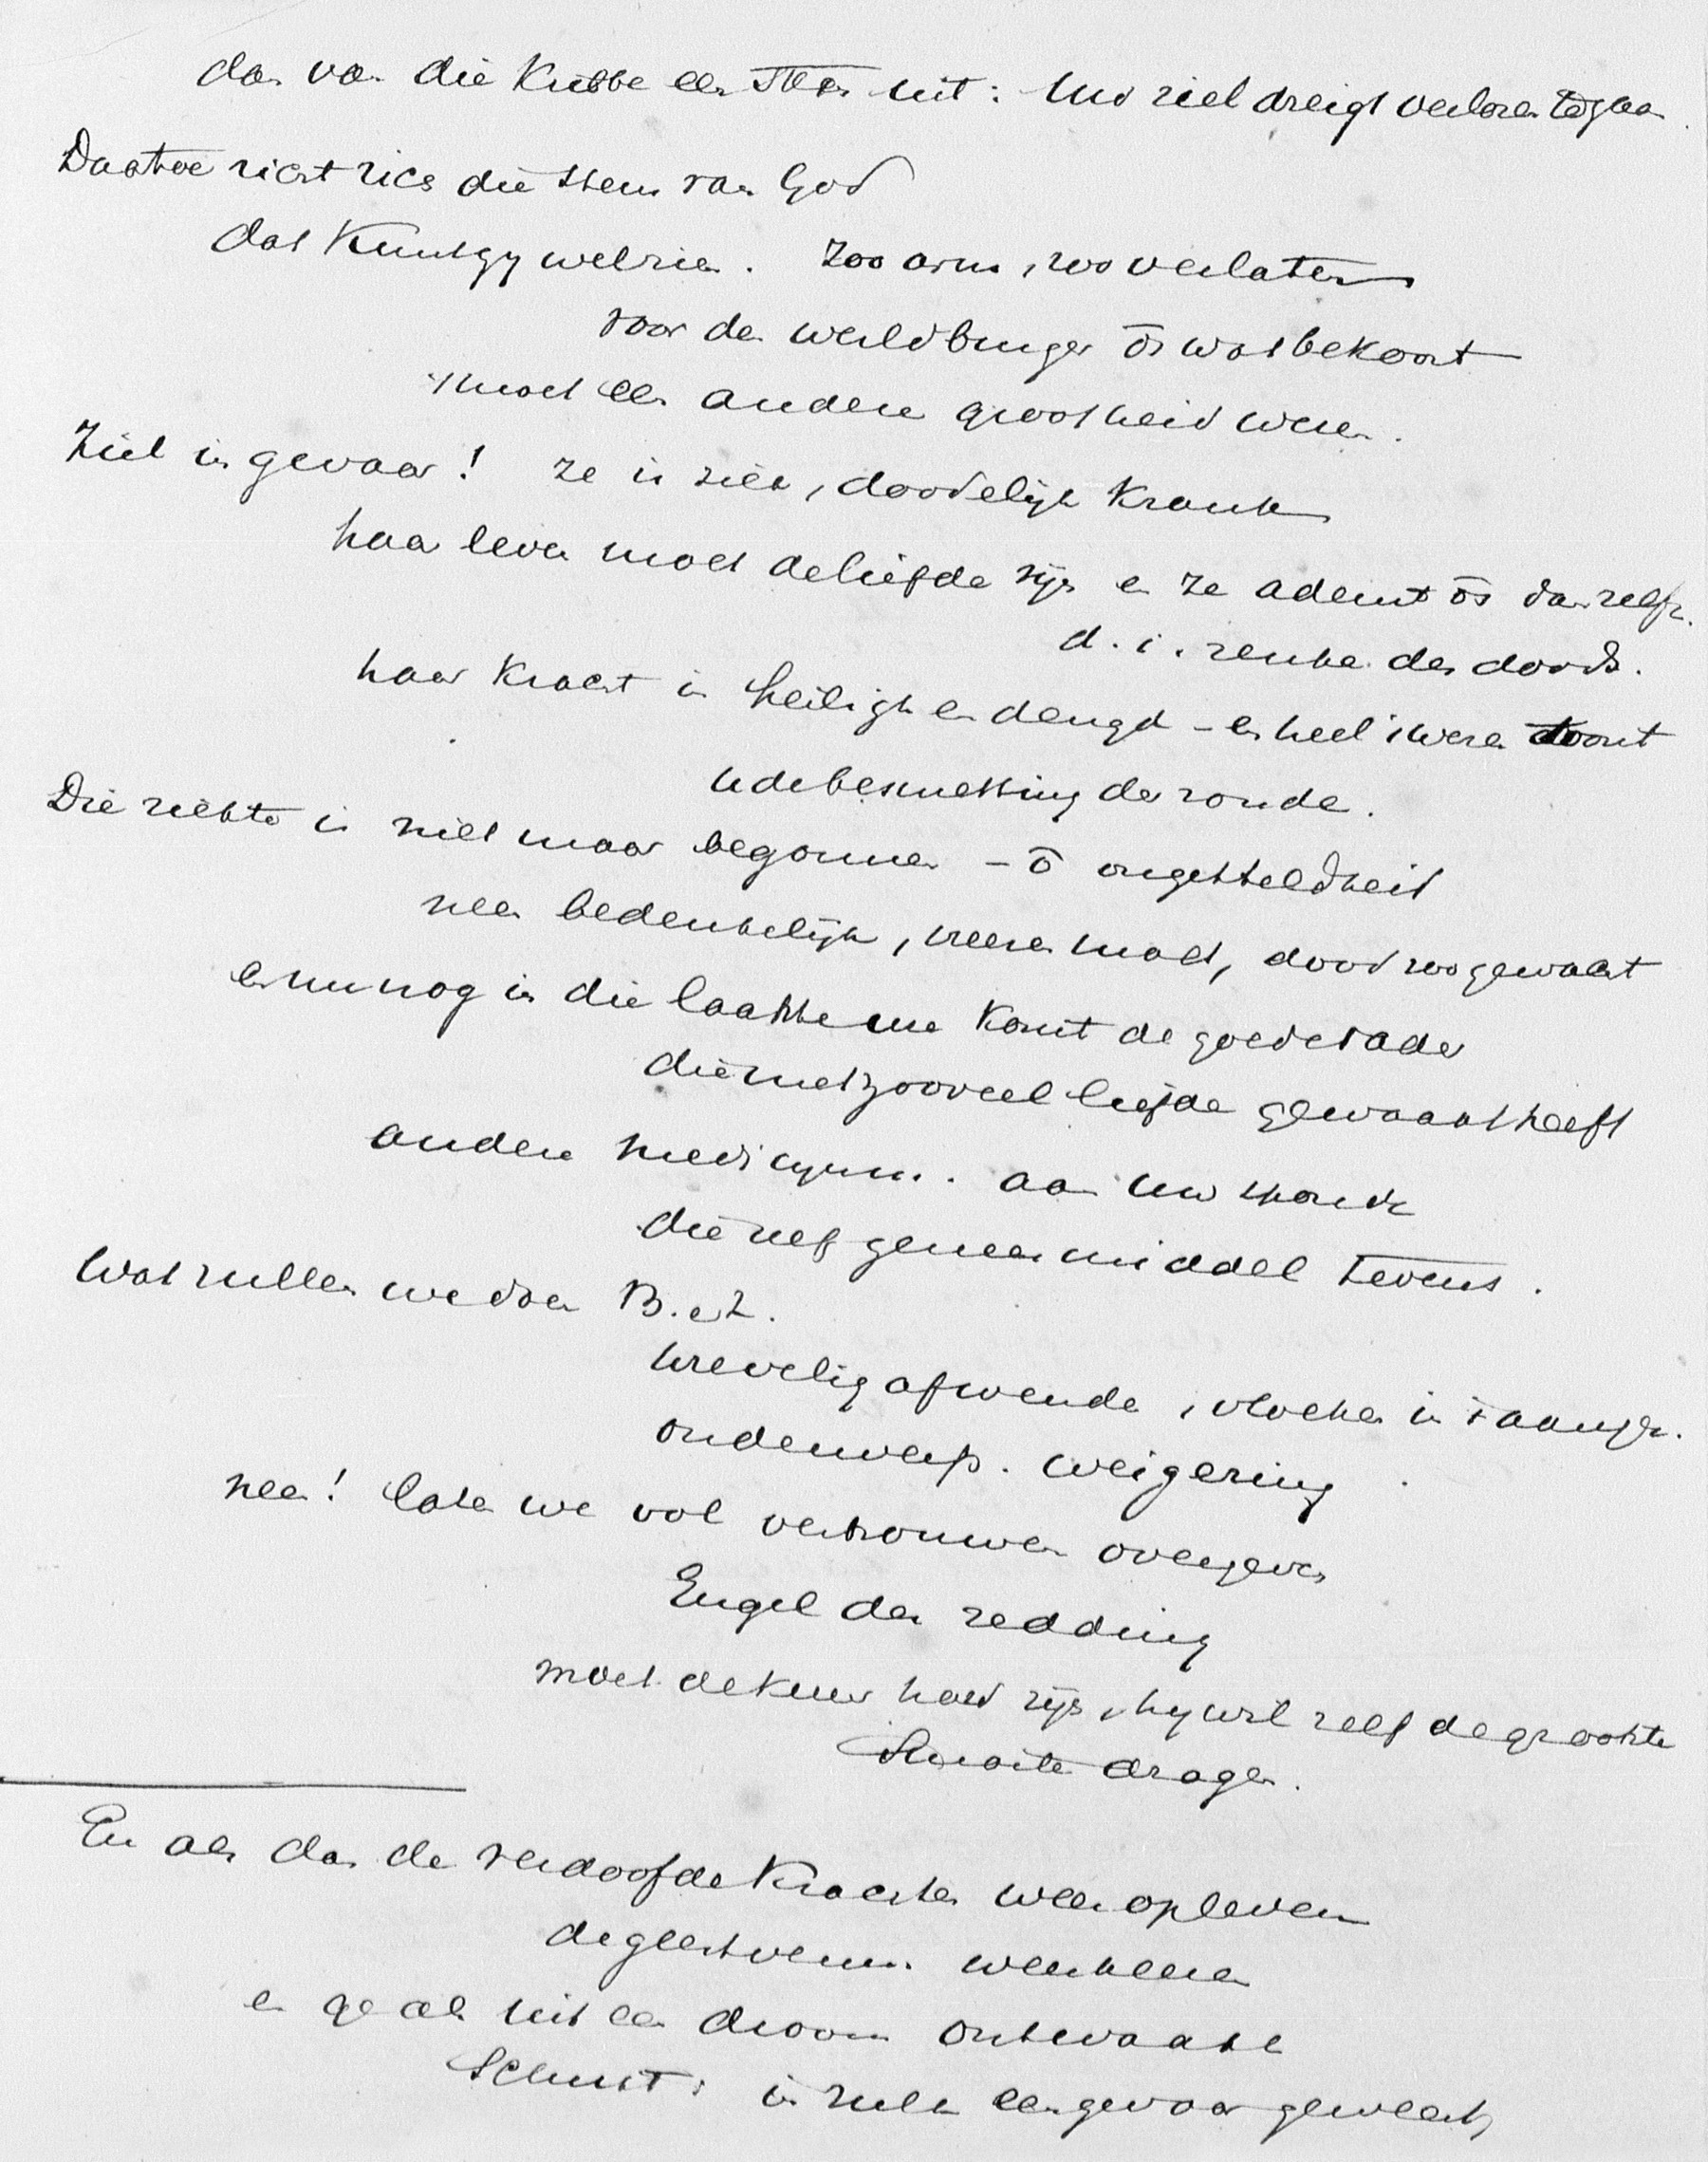 dan van die Kribbe een stem uit: Uw ziel dreigt verloren te gaan.
Daartoe richt zich die stem van God
dat Kunt gy wel zien. Zoo arm, zoo verlaten
voor den wereldburger õs wat bekoort
't moet een andere grootheid wezen.
Ziel in gevaar! ze is ziek, doodelijk Krank
haar leven moet de liefde zijn en ze ademt õs dan zelfz.
d. i. zenke des doods.
haar Kracht is heiligh en deugd - en heel 't wezen toont
u de besmetting der zonde.
Die ziekte is niet maar begonnen - õ ongesteldheid
neen bedenkelijk, vreezen moet, dood zoo gewacht
en nu nog in die laatste ure Komt de goede vader
die met zooveel liefde gewaakt heeft
andere medicynm. aan uw sponde
die zelf geneesmiddel tevens.
Wat zullen we doen B. et Z.
wrevelig afwenden, vloeken in 't aangez.
onderwerp. weigering
neen! laten we vol vertrouwen overgeven
Engel der redding
moet de Keus hard zijn, hy wil zelf de grootste
Smarte dragen.
En als dan de verdoofde Krachten weer opleven
de geestverm. weerkeeren
en ge als uit een droom ontwaakt
Schust: in zulk een gevaar geweest,